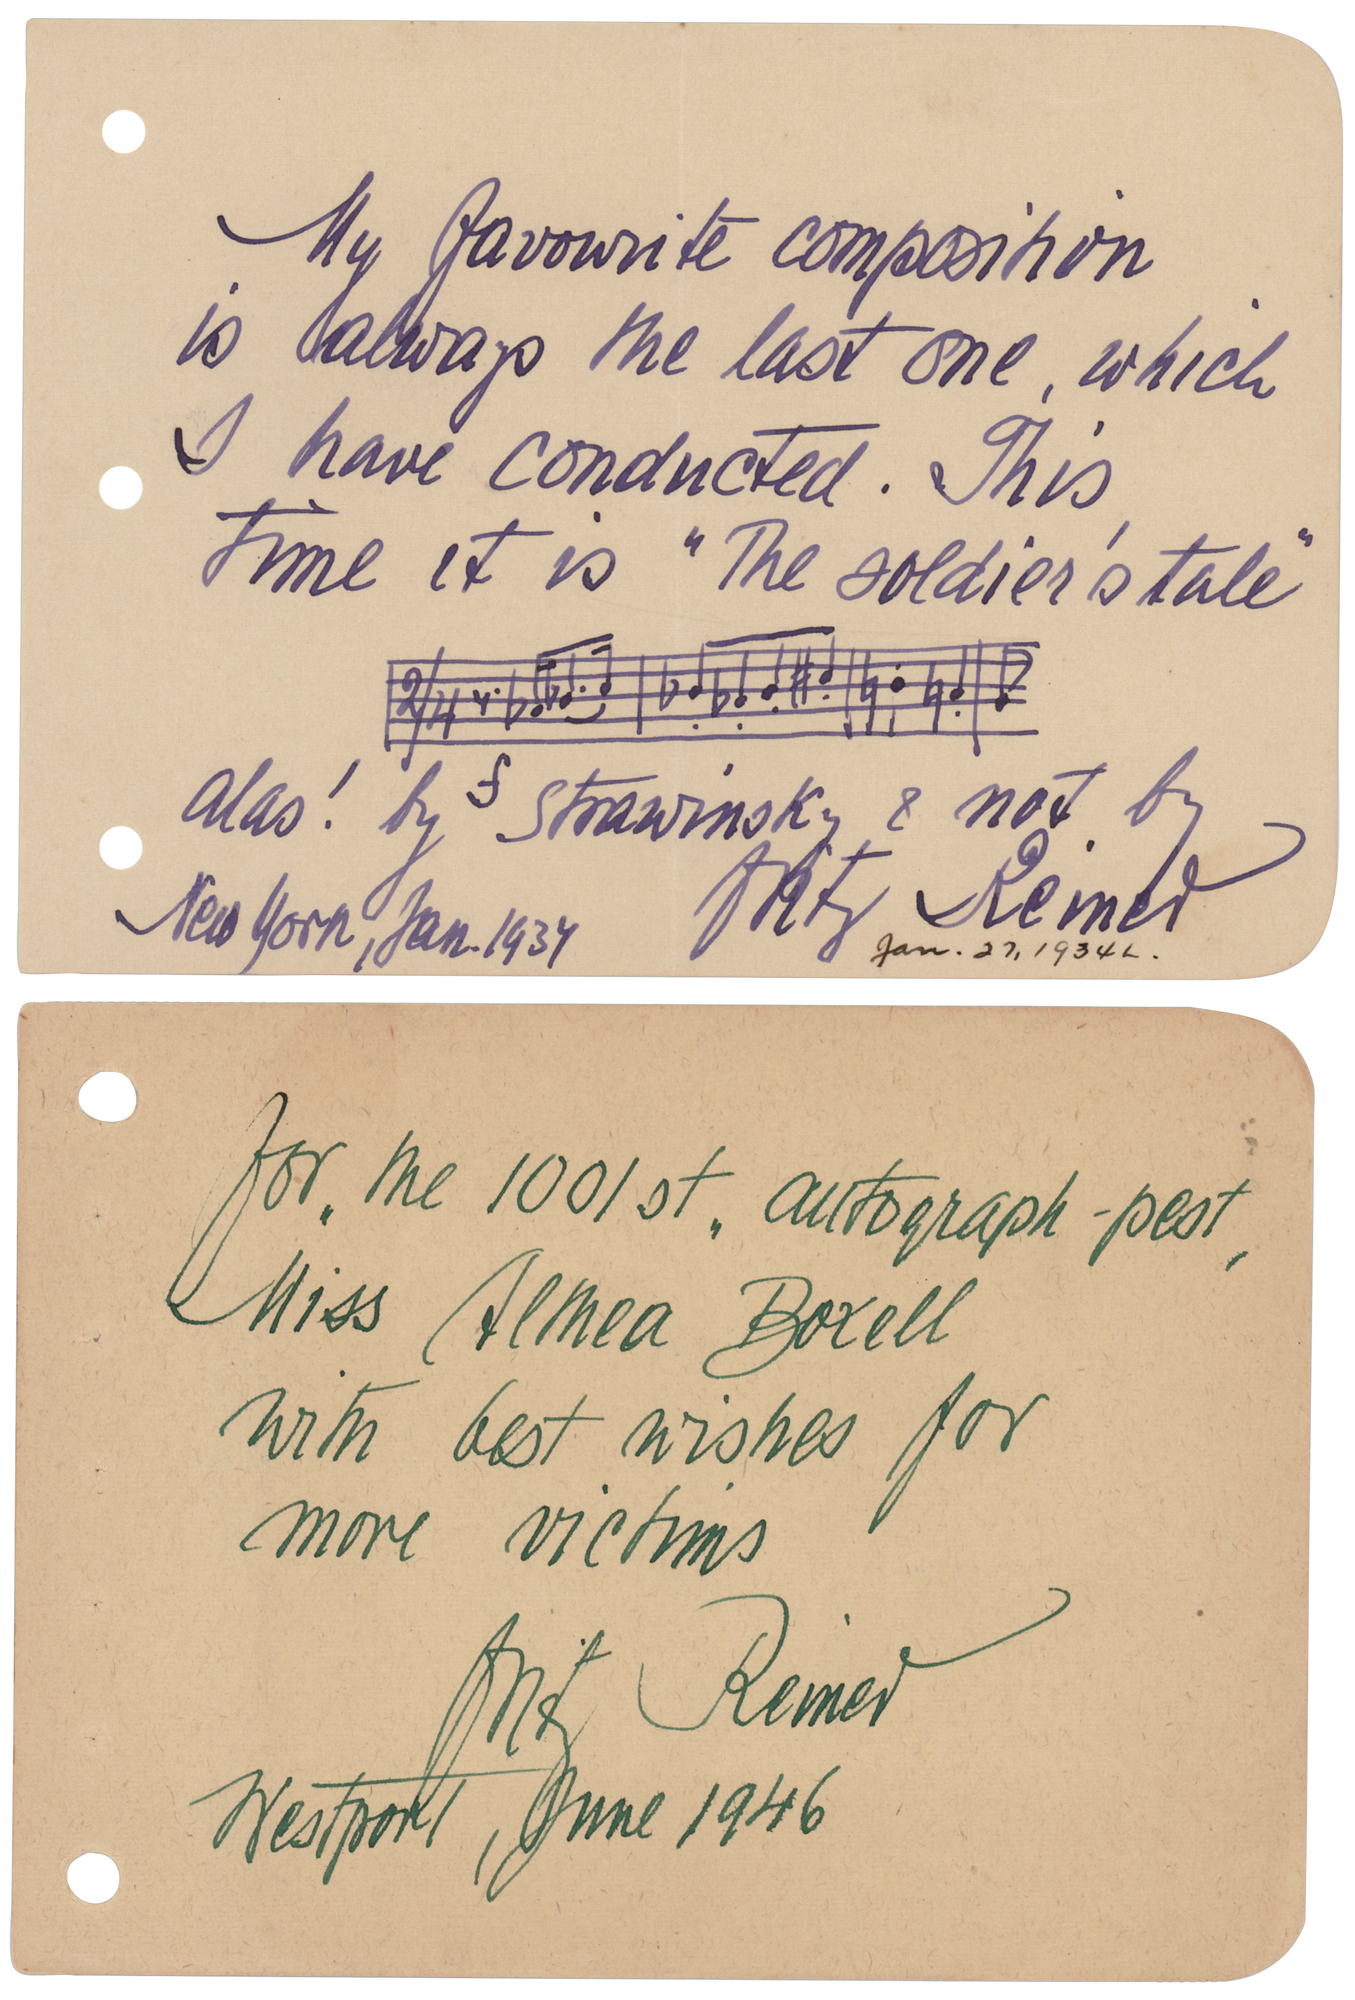 My favourite composition
is always the last one, which
I have conducted. This
time it is "The soldier's tale"
2/4
f
alas! by Strawinsky & not by
Fritz Reiner
New York, Jan. 1934
Jan. 27, 1934 L.
For „the 1001st„ autograph-pest,
Miss Almea Boxell
with best wishes for
more victims
Fritz Reiner
Westport, June 1946